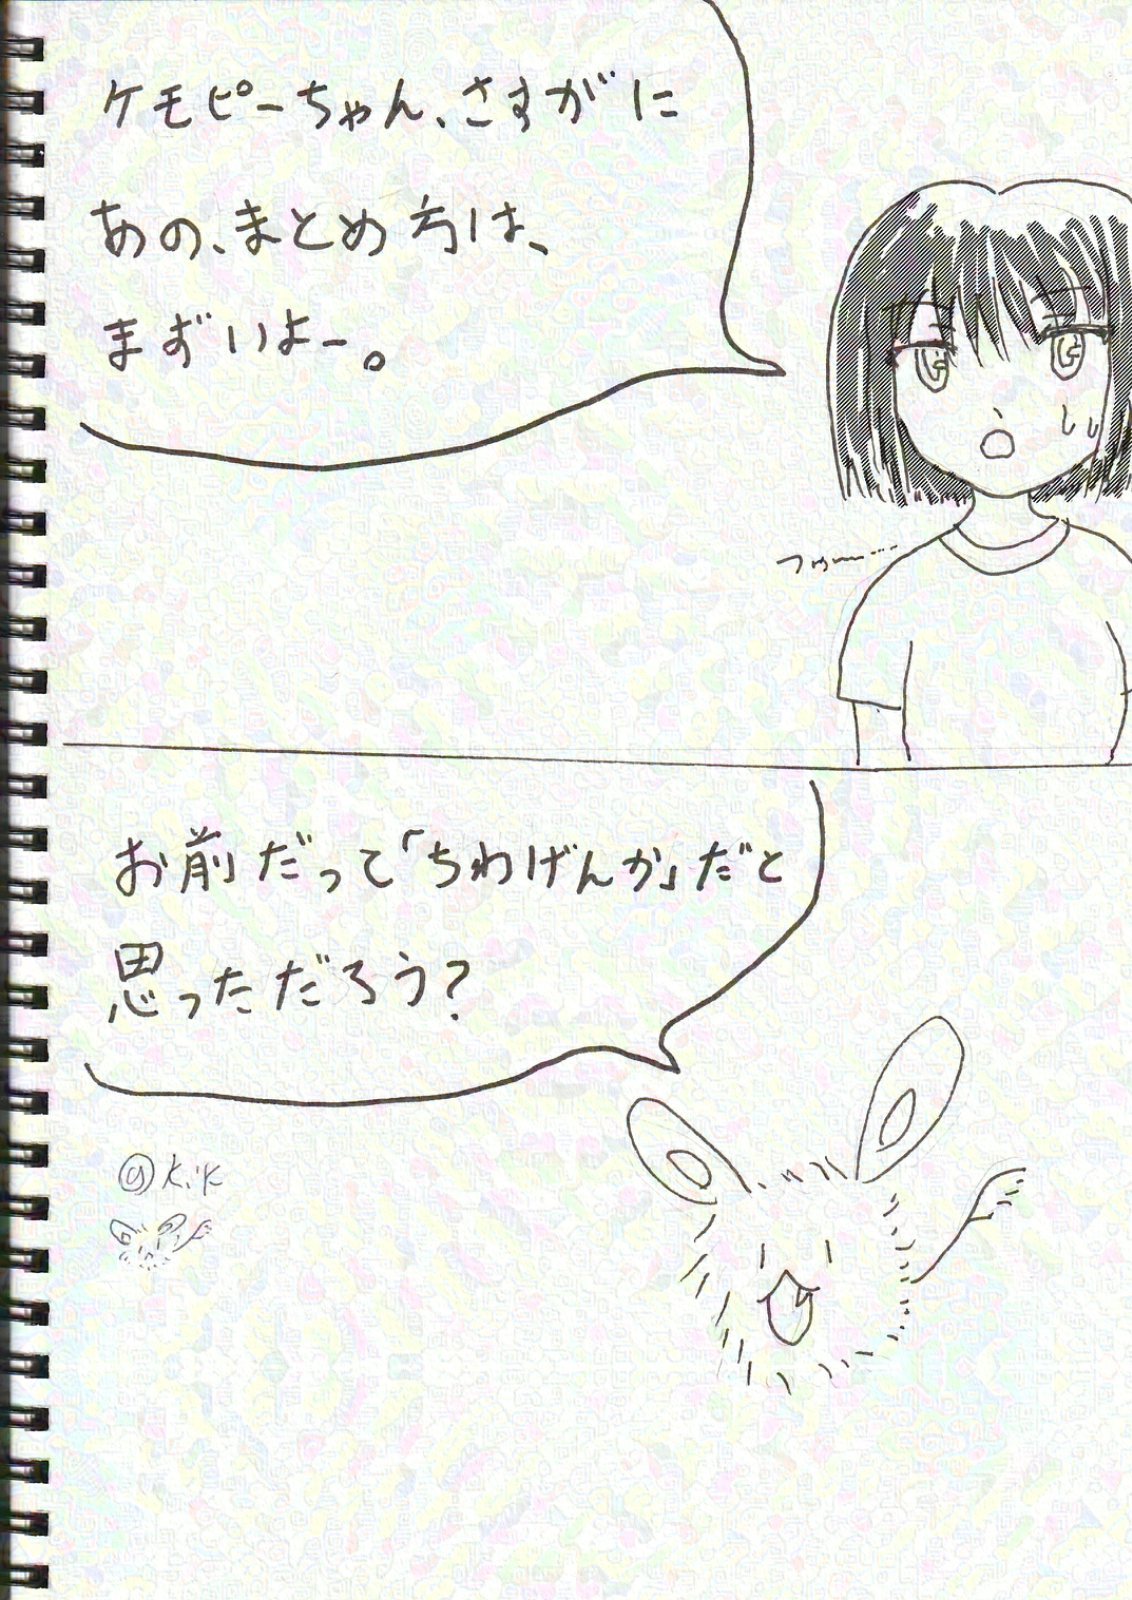 ケモピーちゃん、さすがに
あの、まとめ方は、
まずいよー。
お前だって「ちわげんか」だと
思っただろう?